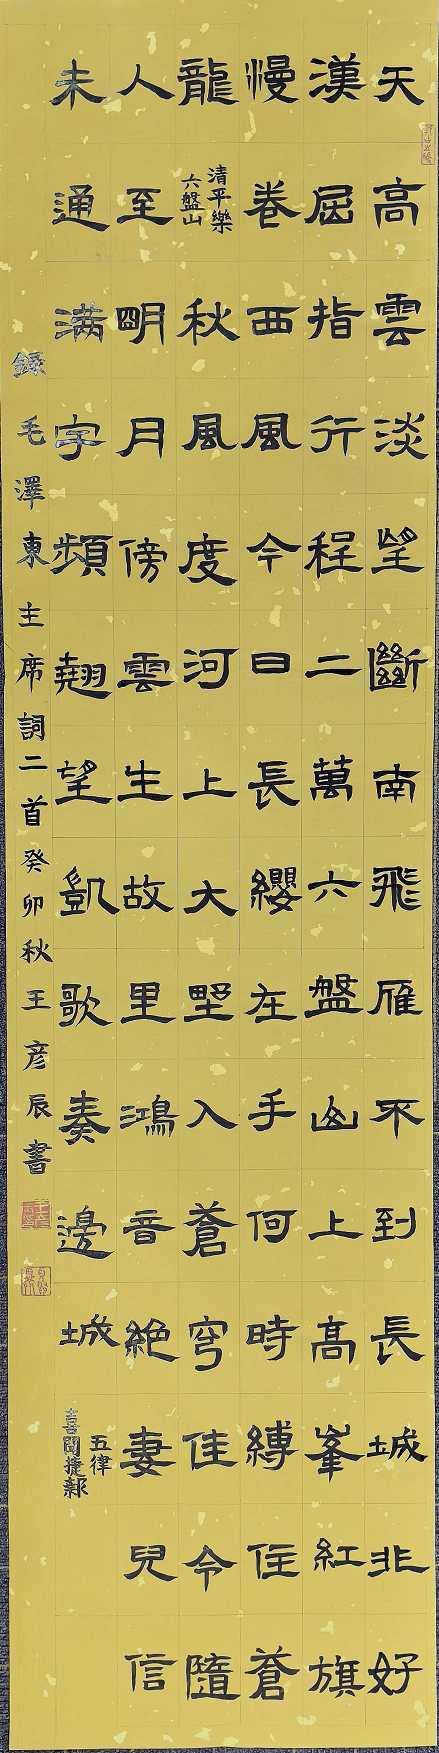 天高雲淡望斷南飛雁不到長城非好
漢屈指行程二萬六盤山上高峯紅旗
慢卷西風今日長纓在手何時縛住蒼
龍
清平樂
六盤山
秋風度河上大野入蒼穹佳令隨
人至明月傍雲生故里鴻音絕妻兒信
未通满宇頻翹望凱歌奏邊城
五律
喜聞捷報
錄毛澤東主席詞二首癸卯秋王彦辰書